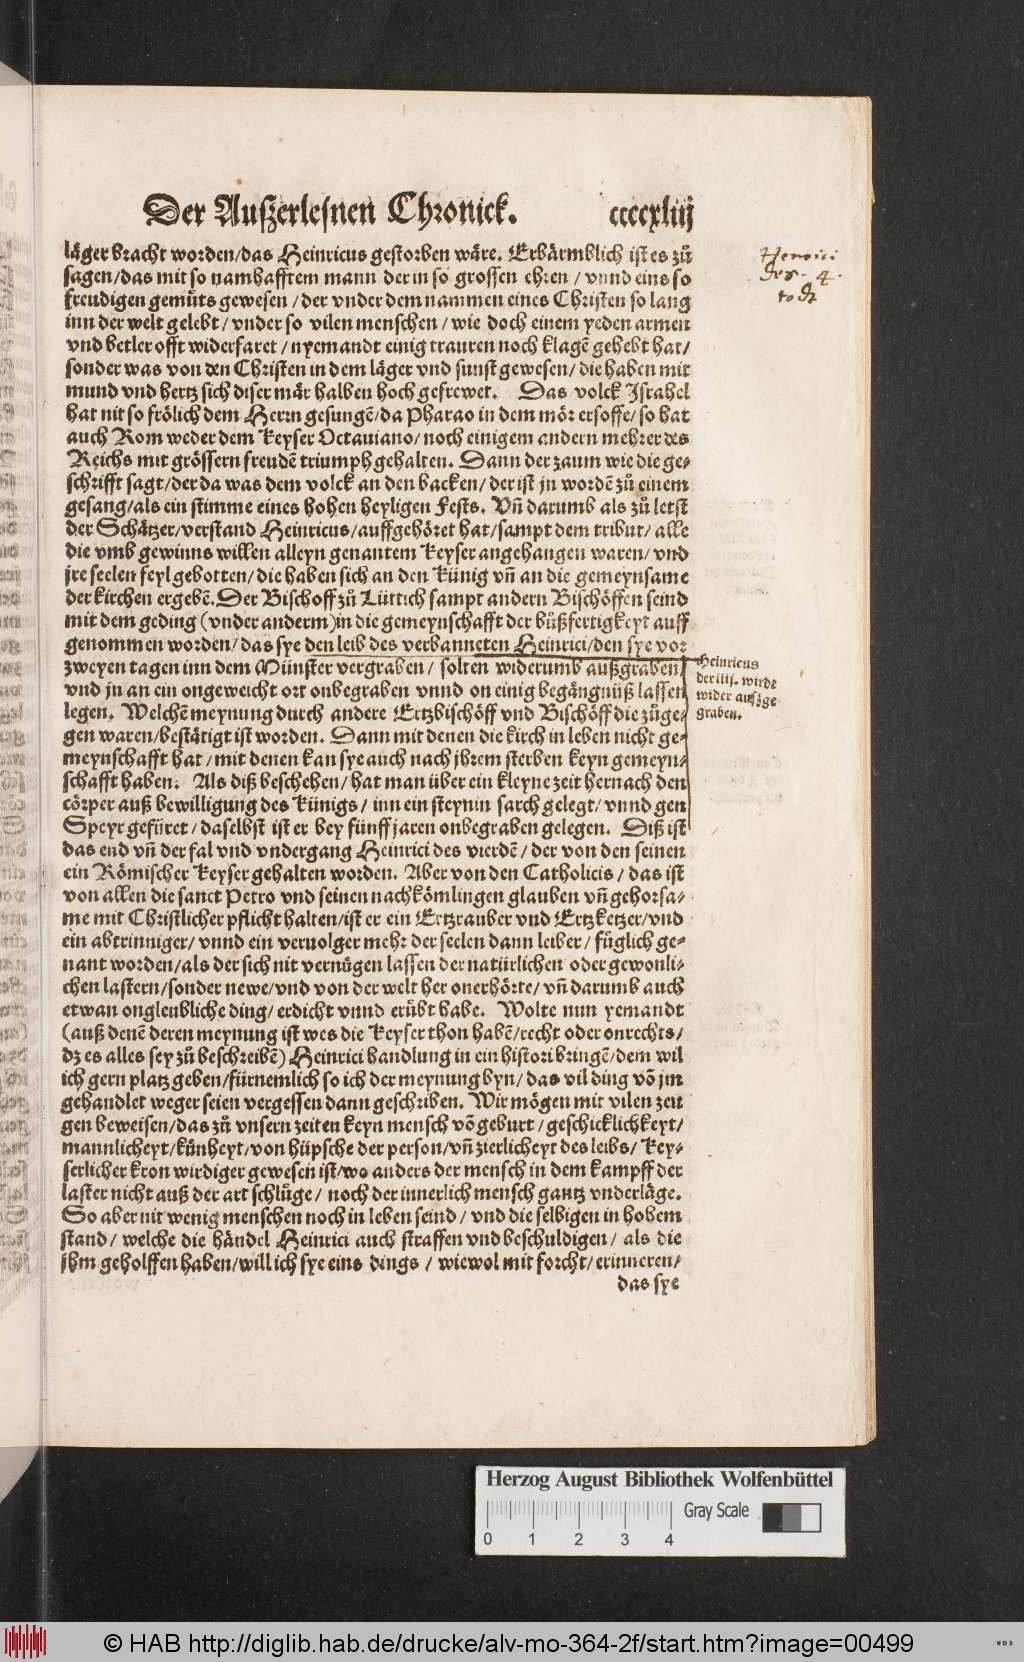 Der Außerlesnen Chronick. ccccxliij
läger bracht worden/das Heinricus gestorben wäre. Erbärmblich ist es zů
sagen/das mit so namhafftem mann der in so grossen ehren / vnnd eins so
freudigen gemüts gewesen / der vnder dem nammen eines Christen so lang
inn der welt gelebt / vnder so vilen menschen / wie doch einem yeden armen
vnd betler offt widerfaret / nyemandt einig trauren noch klagē gehebt hat/
sonder was von den Christen in dem läger vnd sunst gewesen / die haben mit
mund vnd hertz sich diser mär halben hoch gefrewet. Das volck Israhel
hat nit so frölich dem Herrn gesungē/da Pharao in dem mör ersoffe/so hat
auch Rom weder dem Keyser Octauiano/noch einigem andern mehrer des
Reichs mit grössern freudē triumph gehalten. Dann der zaum wie die ge-
schrifft sagt/der da was dem volck an den backen/der ist jn wordē zů einem
gesang/als ein stimme eines hohen heyligen Fests. Vn̄ darumb als zů letst
der Schätzer/verstand Heinricus/auffgehöret hat/sampt dem tribut/ alle
die vmb gewinns willen alleyn genantem Keyser angehangen waren/ vnd
jre seelen feyl gebotten/die haben sich an den Künig vn̄ an die gemeynsame
der kirchen ergebē. Der Bischoff zů Lüttich sampt andern Bischöffen seind
mit dem geding (vnder anderm) in die gemeynschafft der bůßfertigkeyt auff
genommen worden/das sye den leib des verbanneten Heinrici/den sye vor
zweyen tagen inn dem Münster vergraben/ solten widerumb außgraben/
vnd jn an ein ongeweicht ort onbegraben vnnd on einig begängnüß lassen
legen. Welchē meynung durch andere Ertzbischöff vnd Bischöff die zůge-
gen waren/bestätigt ist worden. Dann mit denen die kirch in leben nicht ge-
meynschafft hat / mit denen kan sye auch nach jhrem sterben keyn gemeyn-
schafft haben. Als diß beschehen/ hat man über ein kleyne zeit hernach den
cörper auß bewilligung des Künigs / inn ein steynin sarch gelegt/ vnnd gen
Speyr gefüret / daselbst ist er bey fünff jaren onbegraben gelegen. Diß ist
das end vn̄ der fal vnd vndergang Heinrici des vierdē / der von den seinen
ein Römischer Keyser gehalten worden. Aber von den Catholicis / das ist
von allen die sanct Petro vnd seinen nachkömlingen glauben vn̄ gehorsa-
me mit Christlicher pflicht halten/ist er ein Ertzrauber vnd Ertzketzer/vnd
ein abtrinniger/ vnnd ein veruolger mehr der seelen dann leiber/ füglich ge-
nant worden/als der sich nit vernügen lassen der natürlichen oder gewonli-
chen lastern/sonder newe/vnd von der welt her onerhörte/ vn̄ darumb auch
etwan ongleubliche ding/ erdicht vnnd erübt habe. Wolte nun yemandt
(auß denē deren meynung ist wes die Keyser thon habē/recht oder onrechts/
dz es alles sey zů beschreibē) Heinrici handlung in ein histori bringē/dem wil
ich gern platz geben/fürnemlich so ich der meynung byn/ das vil ding vō jm
gehandlet weger seien vergessen dann geschriben. Wir mögen mit vilen zeu
gen beweisen/das zů vnsern zeiten keyn mensch vō geburt / geschicklichkeyt/
mannlicheyt/künheyt/von hüpsche der person/vn̄ zierlicheyt des leibs/ Key-
serlicher kron wirdiger gewesen ist/wo anders der mensch in dem kampff der
laster nicht auß der art schlůge / noch der innerlich mensch gantz vnderläge.
So aber nit wenig menschen noch in leben seind / vnd die selbigen in hohem
stand/ welche die händel Heinrici auch straffen vnd beschuldigen/ als die
jhm geholffen haben/will ich sye eins dings / wiewol mit forcht/ erinneren/
das sye
Henrici
des. 4.
todt
Heinricus
der iiij. wirdt
wider außge
graben.
Herzog August Bibliothek Wolfenbüttel
0 1 2 3 4
Gray Scale
© HAB http://diglib.hab.de/drucke/alv-mo-364-2f/start.htm?image=00499